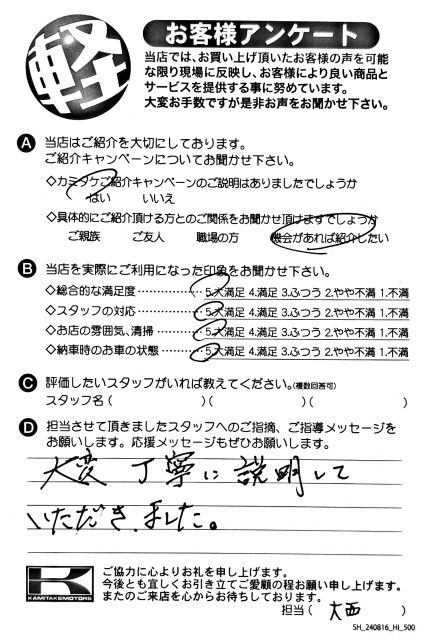 軽
お客様アンケート
当店では、お買い上げ頂いたお客様の声を可能
な限り現場に反映し、お客様により良い商品と
サービスを提供する事に努めています。
大変お手数ですが是非お声をお聞かせ下さい。
A 当店はご紹介を大切にしております。
ご紹介キャンペーンについてお聞かせ下さい。
◇カミタケご紹介キャンペーンのご説明はありましたでしょうか
はい いいえ
◇具体的にご紹介頂ける方とのご関係をお聞かせ頂けますでしょうか
ご親族 ご友人 職場の方 機会があれば紹介したい
B 当店を実際にご利用になった印象をお聞かせ下さい。
◇総合的な満足度 5.大満足 4.満足 3.ふつう 2.やや不満 1.不満
◇スタッフの対応 5.大満足 4.満足 3.ふつう 2.やや不満 1.不満
◇お店の雰囲気、清掃 5.大満足 4.満足 3.ふつう 2.やや不満 1.不満
◇納車時のお車の状態 5.大満足 4.満足 3.ふつう 2.やや不満 1.不満
C 評価したいスタッフがいれば教えてください。(複数回答可)
スタッフ名 ( )( )( )
D 担当させて頂きましたスタッフへのご指摘、ご指導メッセージを
お願いします。応援メッセージもぜひお願いします。
大変 丁寧に 説明して
いただきました。
K
KAMITAKEMOTORS
ご協力に心よりお礼を申し上げます。
今後とも宜しくお引き立てご愛顧の程お願い申し上げます。
またのご来店を心からお待ちしております。
担当 ( 大西 )
SH_240816_HI_500